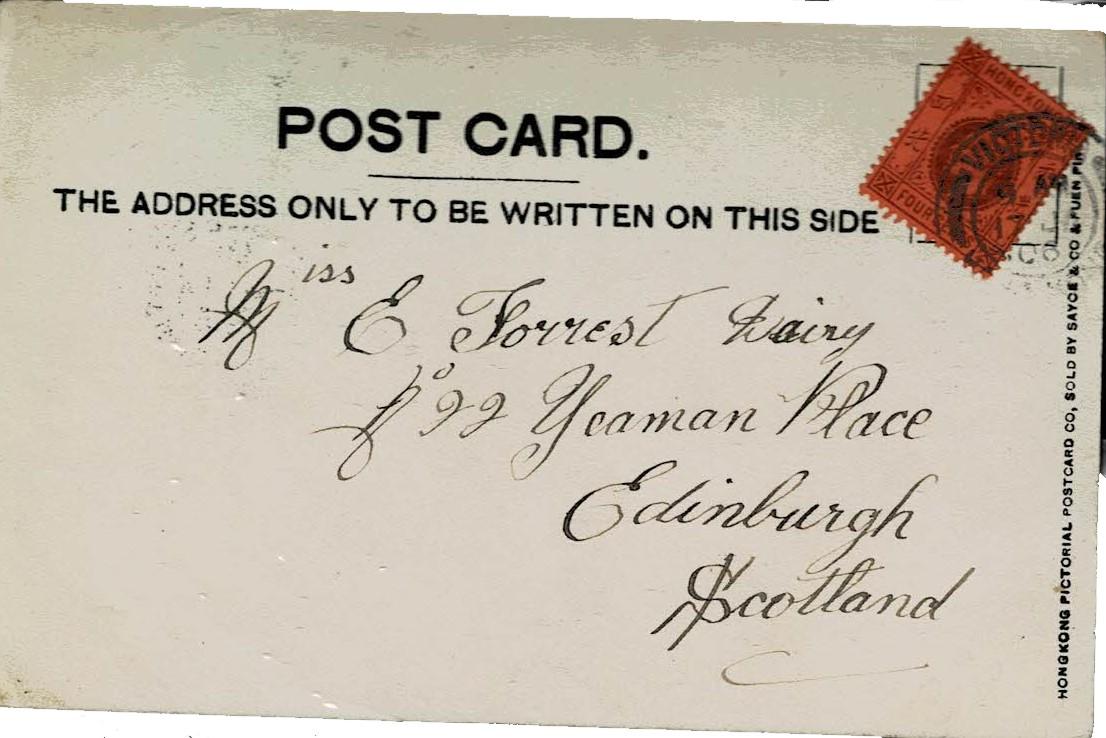 POST CARD.
THE ADDRESS ONLY TO BE WRITTEN ON THIS SIDE
HONGKONG
FOUR
VICTORIA
Miss E Forrest Dairy
No 22 Yeaman Place
Edinburgh
Scotland
HONGKONG PICTORIAL POSTCARD CO, SOLD BY SAYCE & CO & FUEN PIN